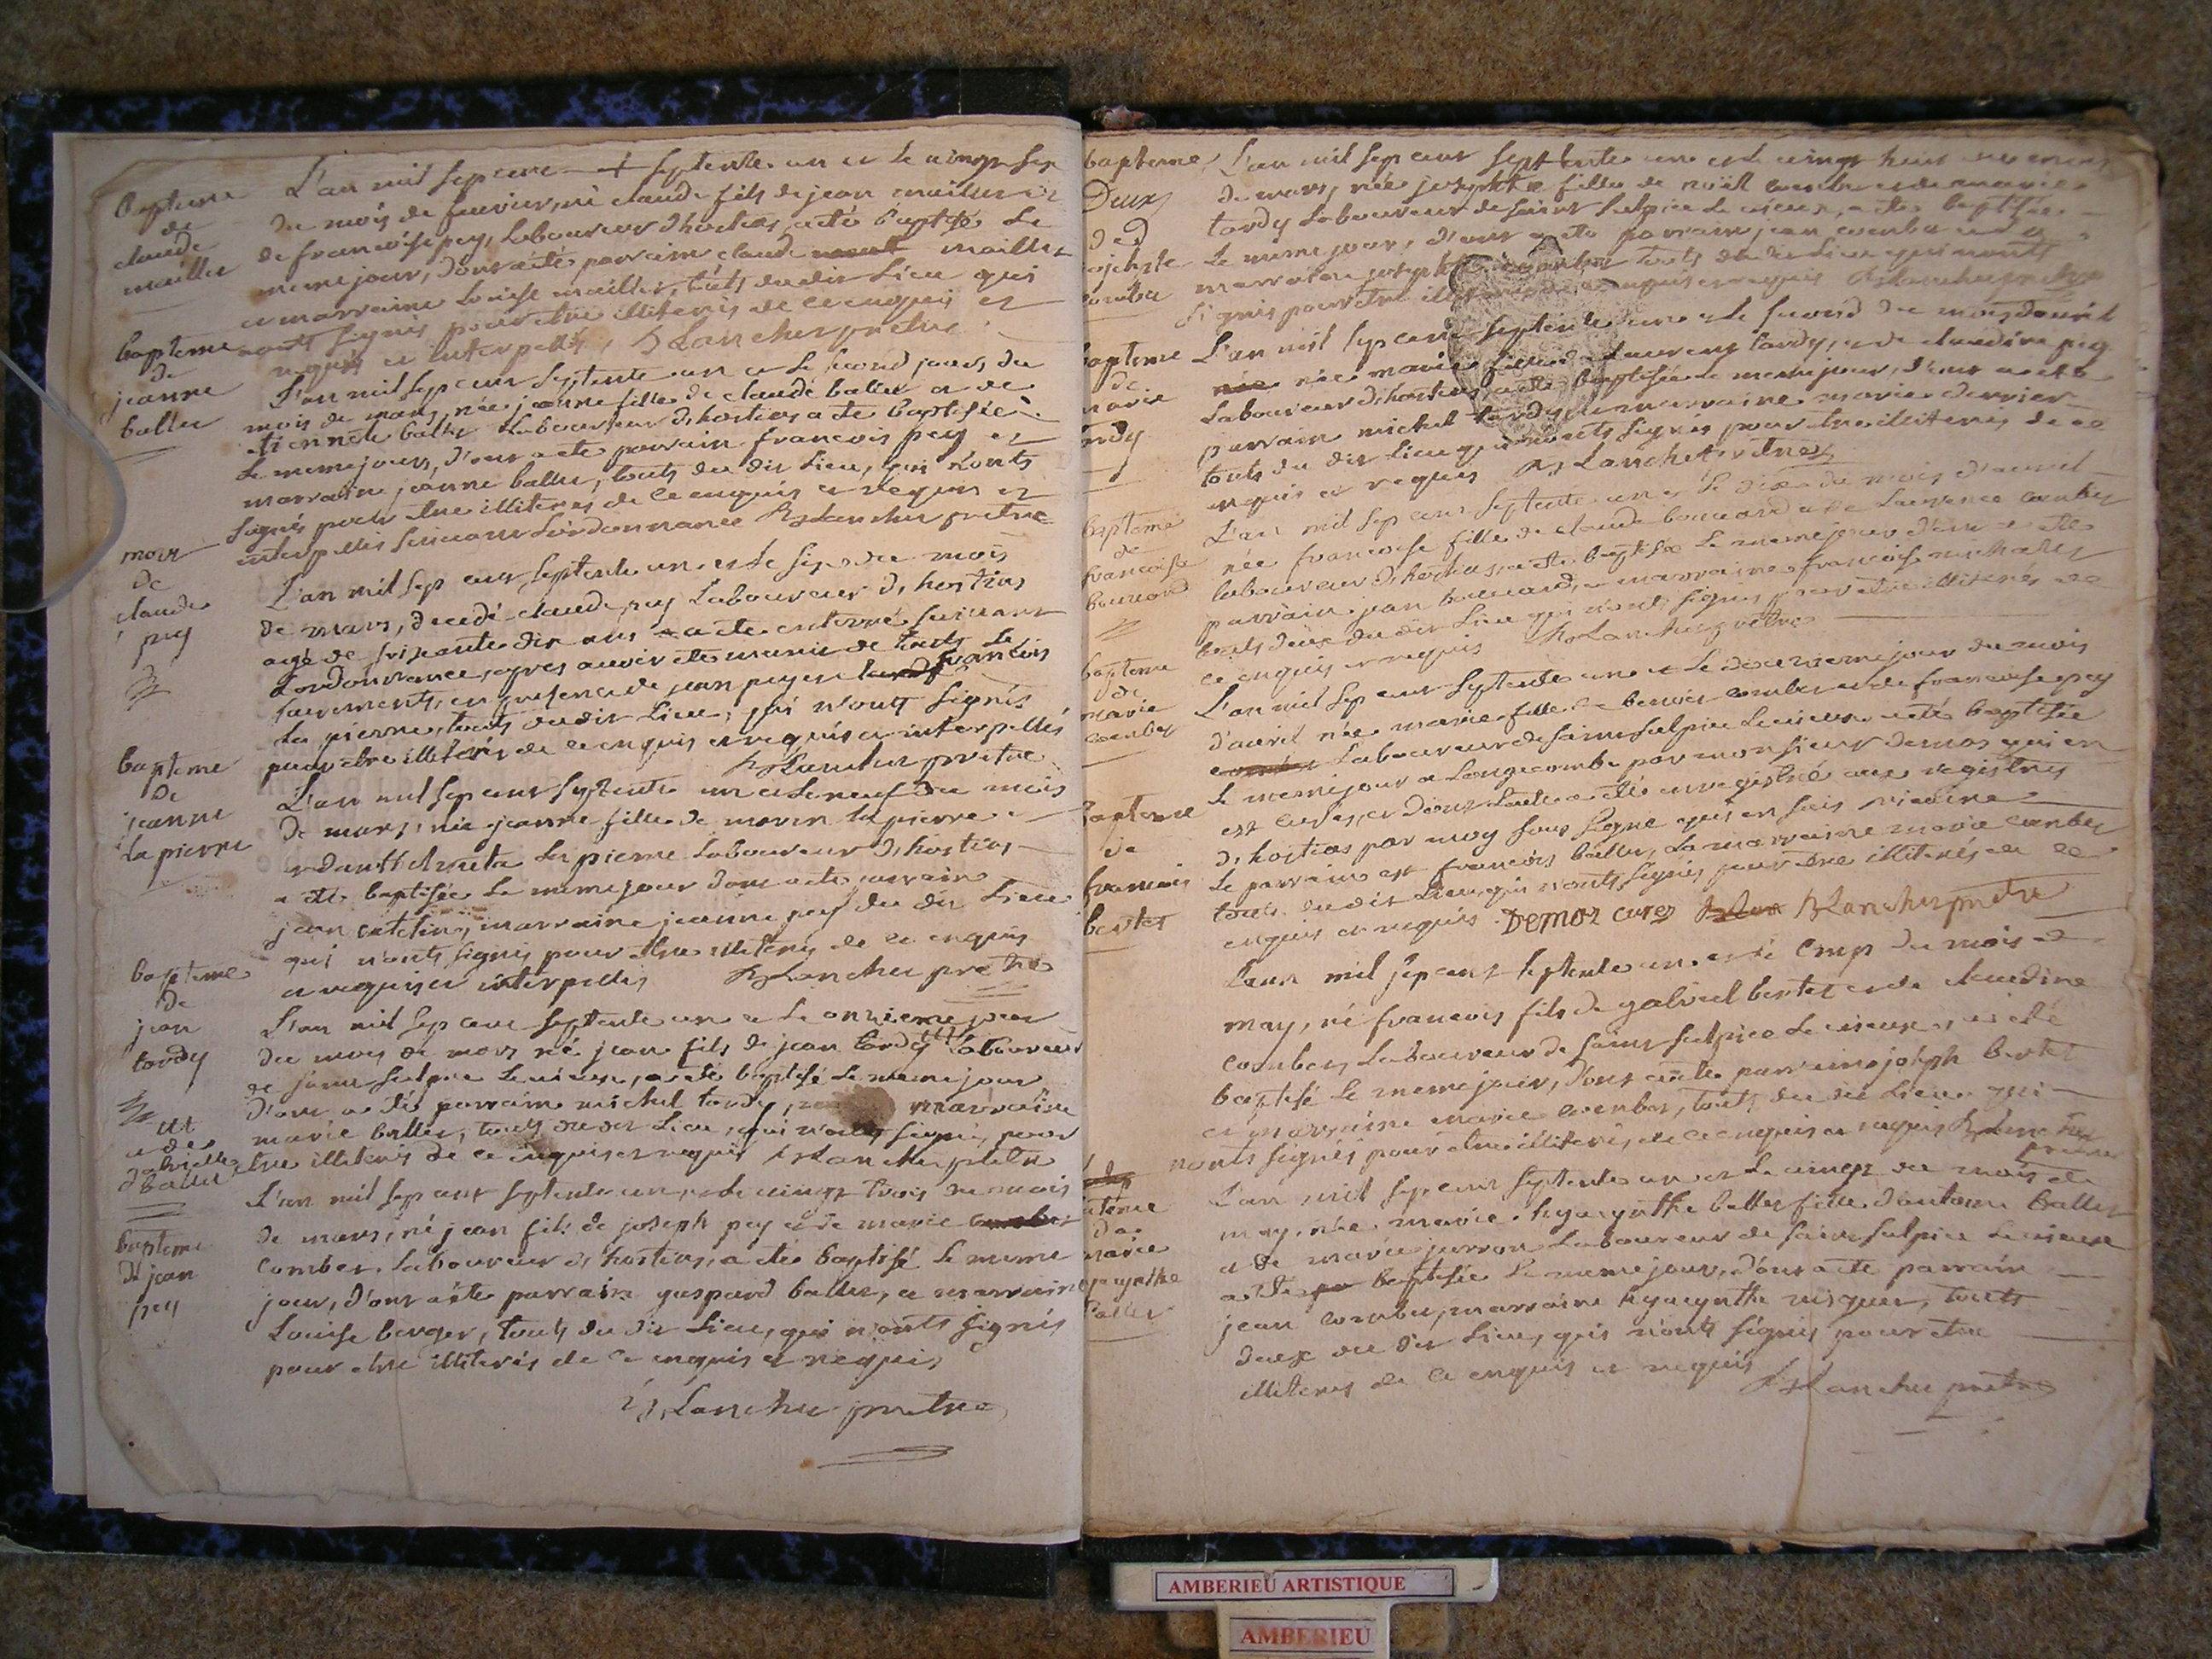 bapteme
de
claude
maillet
L'an mil sept cent + septente un et le vingt sep
du mois de fevrier, né claude fils de jean maillet et
de francoise pey, laboureur d'hostias, a été baptisé le
meme jour, dont a été parrain claude maillet
et marraine Louise maillet, touts dudit lieu qui
n'onts signés pour etre illiterés de ce enquis et
requis et interpellés, Lancher pretre
bapteme
de
jeanne
ballet
L'an mil sept cent septente un et le second jours du
mois de mars, née jeanne fille de claude ballet et de
tiennete ballet laboureur d'hostias a été baptisée
le meme jours, d'ont a été parrain francois pey et
marraine jeanne ballet, touts du dit lieu, qui n'onts
signés pour etre illiterés de ce enquis et requis et
interpellés suivant l'ordonnance Lancher pretre
mort
de
claude
pey
L'an mil sept cent septente un et le sept du mois
de mars, decedé claude pey laboureur d'hostias
agé de soixante dix ans a été enterré suivant
l'ordonnance, apres avoir été muni de touts le
sacrements, en presence de jean pey et francois
la pierre, touts dudit lieu, qui n'ont signés
pour etre illiterés de ce enquis et requis et interpellés
Lancher pretre
bapteme
de
jeanne
la pierre
L'an mil sept cent septente un et le neuf du mois
de mars, née jeanne fille de la pierre
la pierre laboureur d'hostias
a été baptisée le meme jour dont a été parrain
jean marraine jeanne pey du dit lieu
qui n'onts signés pour etre illiterés de ce enquis
et requis et interpellés Lancher pretre
bapteme
de
jean
tardy
et de
gabrielle
ballet
L'an mil sept cent septente un et le onzieme jour
du mois de mars né jean fils de jean tardy laboureur
de saint sulpice le vieux, a été baptisé le meme jour
d'ont a été parrain michel tardy, marraine
marie ballet, touts du dit lieu, qui n'onts signés, pour
etre illiterés de ce enquis et requis Lancher pretre
bapteme
de jean
pey
L'an mil sept cent septente un, et le vingt trois du mois
de mars, né jean fils de joseph pey et de marie
combet laboureur d'hostias, a été baptisé le meme
jour, d'ont a été parrain gaspard ballet, et marraine
Louise berger, touts du dit lieu, qui n'onts signés
pour etre illiterés de ce enquis et requis
Lancher pretre
bapteme
Deux
ded
L'an mil sept cent septtente un et le vingt huit du mois
de mars, née josephte fille de noël combet et de marie
tardy laboureur de saint sulpice le vieux, a été baptisée
le meme jour, d'ont a été parrain jean combet et
marraine josephte touts du dit lieu qui n'onts
signés pour etre illiterés de ce enquis et requis Lancher pretre
bapteme
de
marie
tardy
L'an mil sept cent septente un et le second du mois d'avril
née marie fille de laurent tardy, et de claudine pey
laboureur d'hostias, a été baptisée le meme jour, d'ont a été
parrain michel tardy et marraine marie derrier
touts du dit lieu qui n'onts signés pour etre illiterés de ce
enquis et requis Lancher pretre
bapteme
de
francoise
bouvard
L'an mil sept cent septente un et le dix du mois d'avril
née francoise fille de claude bouvard et de Laurence combet
laboureur d'hostias, a été baptisée le meme jour d'ont a été
parrain jean bouvard, et marraine francoise
touts deux du dit lieu qui n'onts signés pour etre illiterés de
ce enquis et requis Lancher pretre
bapteme
de
marie
combet
L'an mil sept cent septente un et le douzieme jour du mois
d'avril née marie fille de benoit combet et de francoise pey
laboureur de saint sulpice le vieux a été baptisée
le meme jour a Longecombe par monsieur demoz qui en
est curés, et d'ont l'acte a été enregistré aux registres
d'hostias par moy sous signé qui en fais
le parrain est francois ballet, la marraine marie combet
touts dudit lieu, qui n'onts signés pour etre illiterés de ce
enquis et requis Demoz curez Lancher pretre
bapteme
de
francois
bertet
L'an mil sept cent septente un et le cinq du mois de
may, né francois fils de gabriel bertet et de claudine
combet, laboureur de saint sulpice le vieux, a été
baptisé le meme jour, d'ont a été parrain joseph bertet
et marraine marie combet, touts du dit lieu qui
n'onts signés pour etre illiterés, de ce enquis et requis Lancher
pretre
de
marie
hyacynthe
ballet
L'an mil sept cent septente un et le vingt du mois de
may, née marie hyacynthe ballet fille d'antoine ballet
et de marie laboureur de saint sulpice le vieux
a été baptisée le meme jour, d'ont a été parrain
jean combet, marraine hyacynthe touts
deux du dit lieu, qui n'onts signés pour etre
illiterés de ce enquis et requis
Lancher pretre
AMBERIEU ARTISTIQUE
AMBERIEU